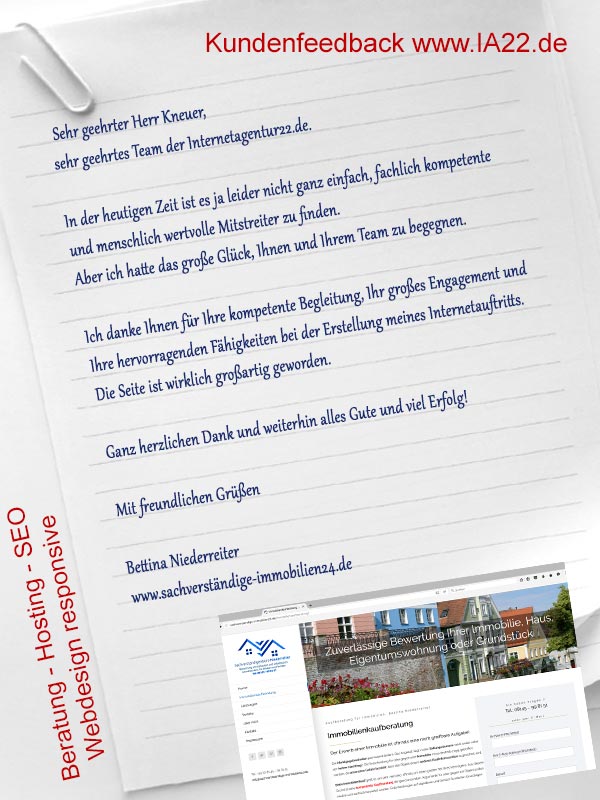 Kundenfeedback www.IA22.de
Sehr geehrter Herr Kneuer,
sehr geehrtes Team der Internetagentur22.de.
In der heutigen Zeit ist es ja leider nicht ganz einfach, fachlich kompetente
und menschlich wertvolle Mitstreiter zu finden.
Aber ich hatte das große Glück, Ihnen und Ihrem Team zu begegnen.
Ich danke Ihnen für Ihre kompetente Begleitung, Ihr großes Engagement und
Ihre hervorragenden Fähigkeiten bei der Erstellung meines Internetauftritts.
Die Seite ist wirklich großartig geworden.
Ganz herzlichen Dank und weiterhin alles Gute und viel Erfolg!
Mit freundlichen Grüßen
Bettina Niederreiter
www.sachverständige-immobilien24.de
Beratung - Hosting - SEO
Webdesign responsive
Zuverlässige Bewertung Ihrer Immobilie, Haus,
Eigentumswohnung oder Grundstück
Immobilienkaufberatung